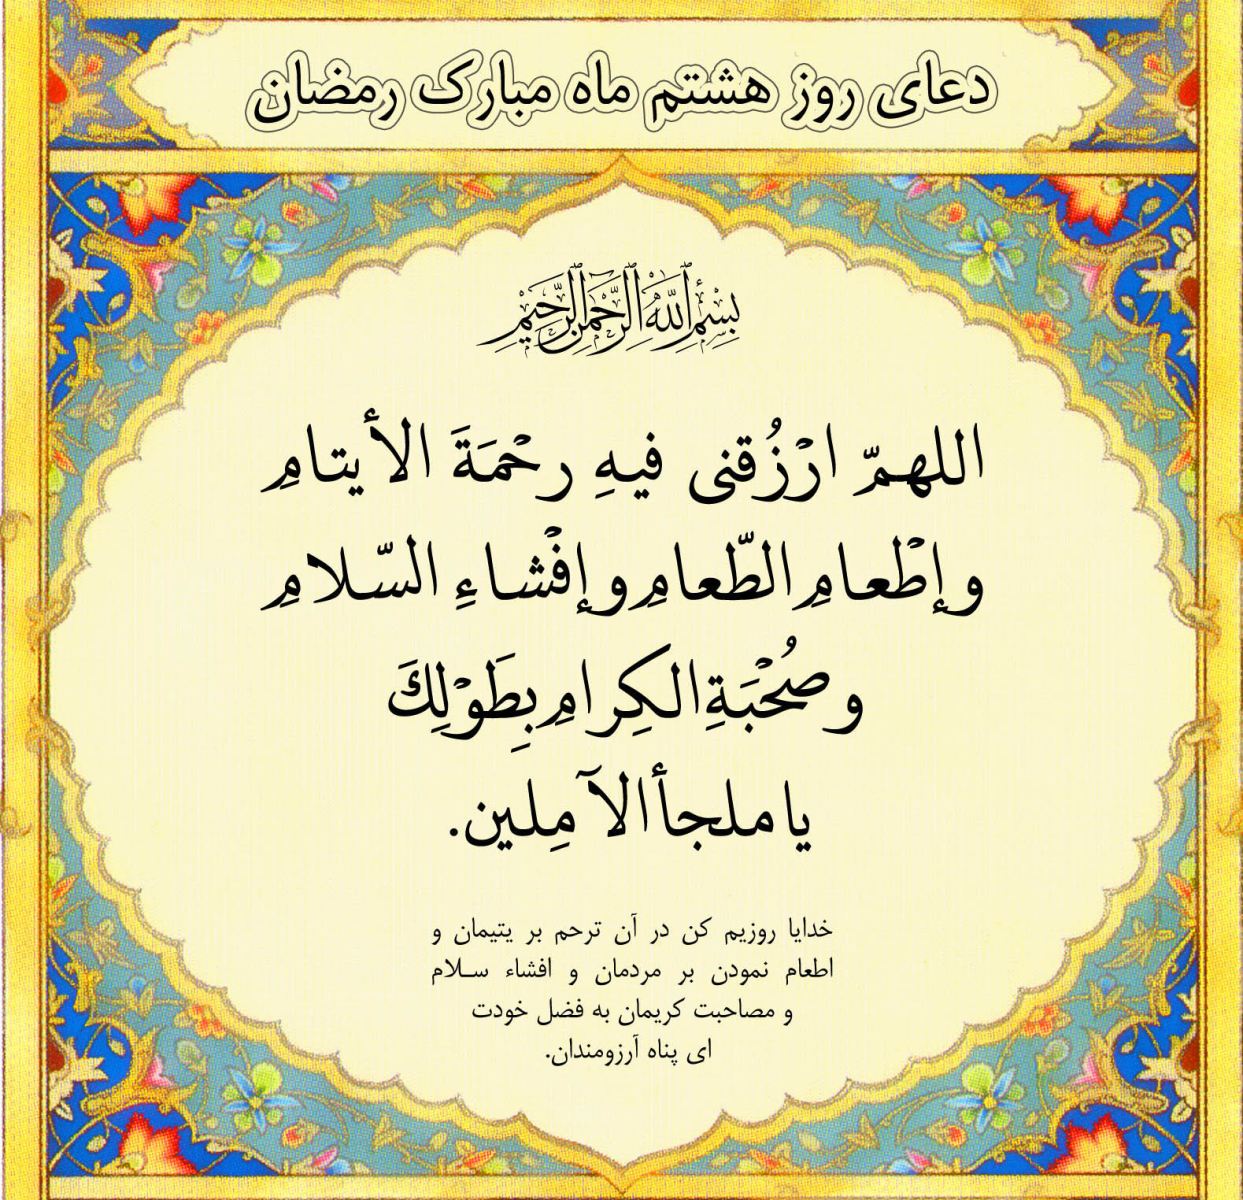 دعای روز هشتم ماه مبارک رمضان
بِسْمِ اللَّهِ الرَّحْمنِ الرَّحِیمِ
اللهمّ ارْزُقنی فیهِ رحْمَةَ الأیتامِ
وإطْعامِ الطّعامِ وإفْشاءِ السّلامِ
وصُحْبَةِ الکِرامِ بِطَوْلِكَ
یا ملجأ الآمِلین.
خدایا روزیم کن در آن ترحم بر یتیمان و
اطعام نمودن بر مردمان و افشاء سـلام
و مصاحبت کریمان به فضل خودت
ای پناه آرزومندان.